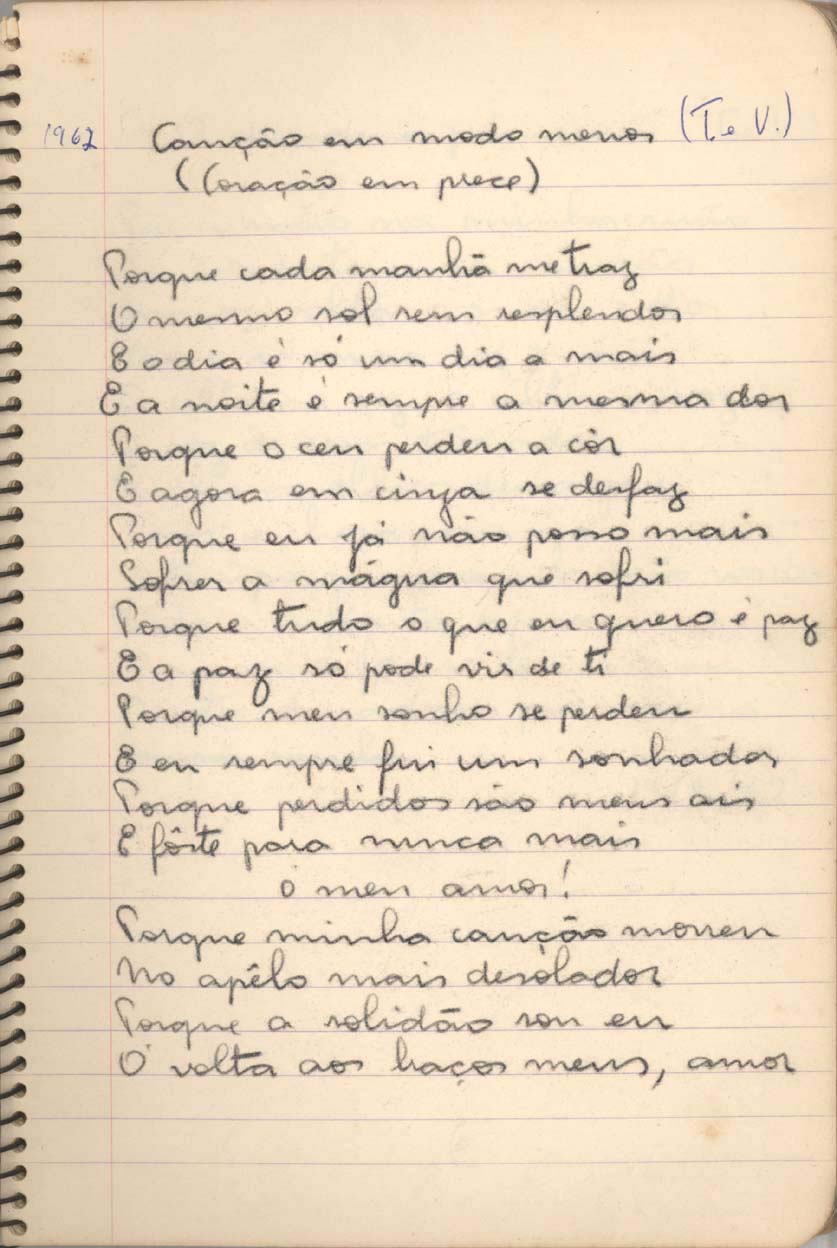 1962 Canção em modo menor (T. e V.)
((oração em prece)
Porque cada manhã me traz
O mesmo sol sem resplendor
E o dia é só um dia a mais
E a noite é sempre a mesma dor
Porque o ceu perdeu a côr
E agora em cinza se desfaz
Porque eu já não posso mais
Sofrer a mágua que sofri
Porque tudo o que eu quero é paz
E a paz só pode vir de ti
Porque meu sonho se perdeu
E eu sempre fui um sonhador
Porque perdidos são meus ais
E fôste para nunca mais
Ó meu amor!
Porque minha canção morreu
No apêlo mais desolador
Porque a solidão sou eu
Ó volta aos braços meus, amor